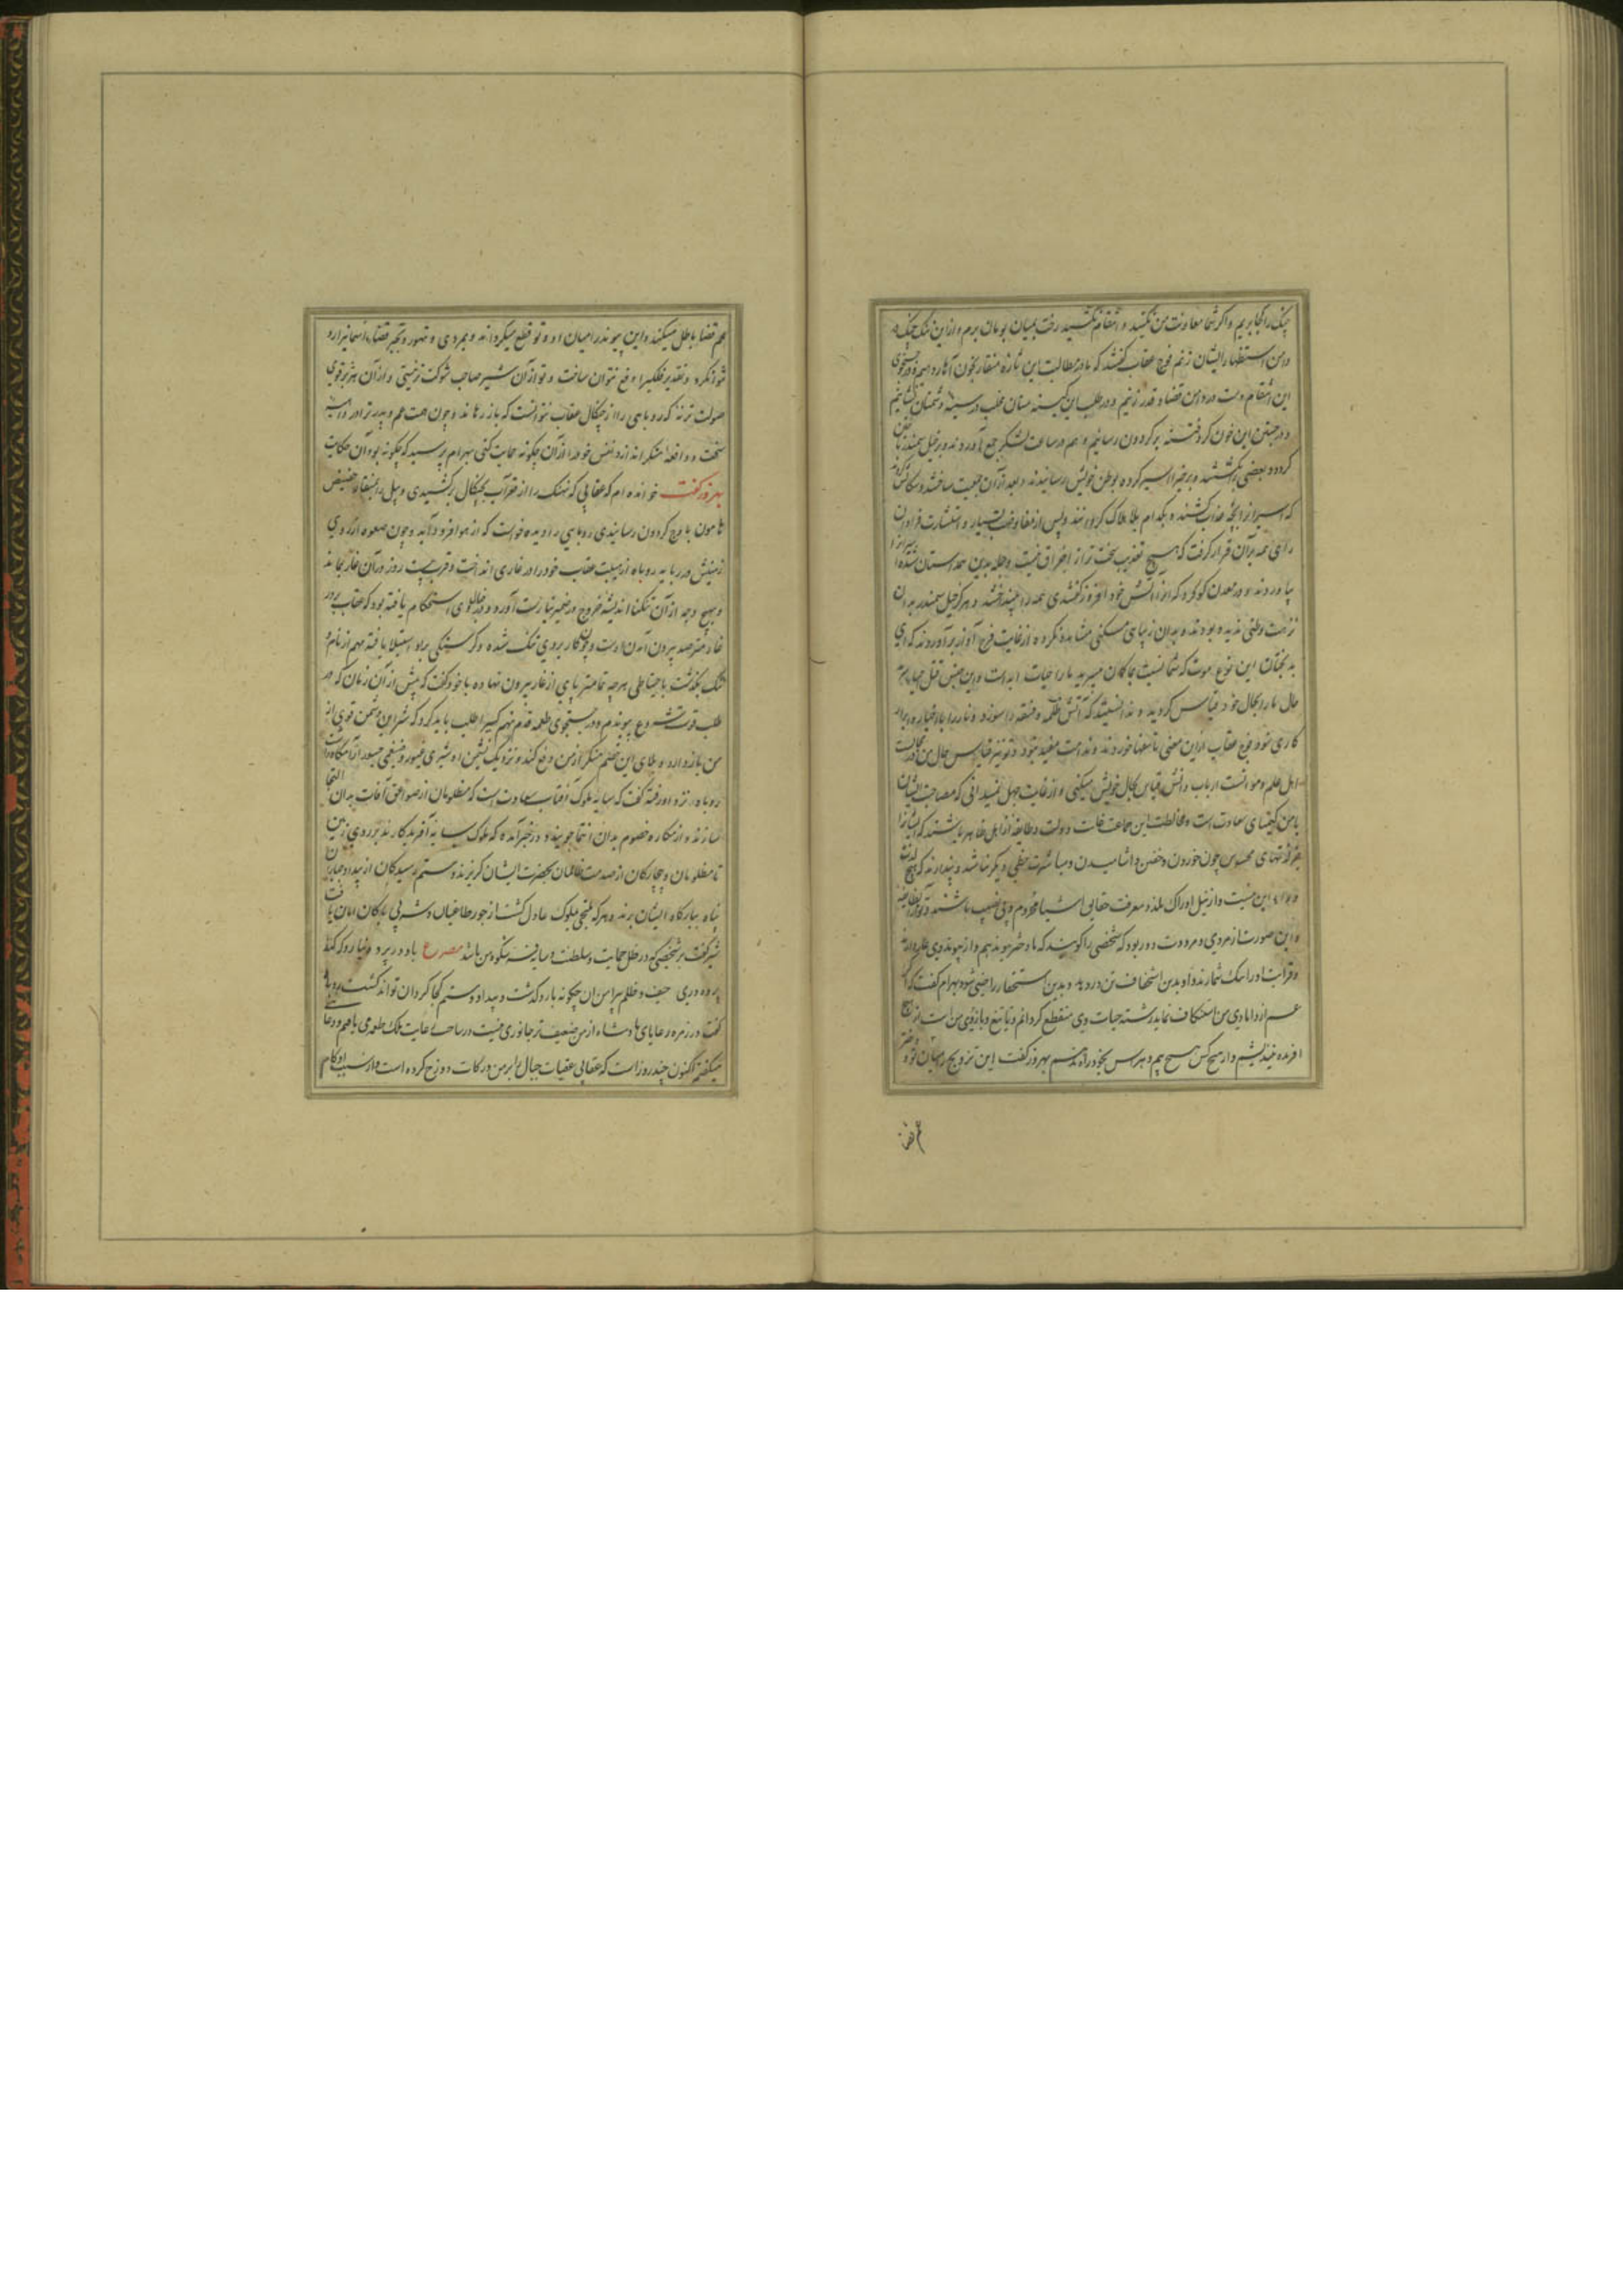 چنگ را کجا بریم و اگر شما معاونت من نکنید و انتقام نکشید رخت بمیان بومان برم و از این ننگ چنگ در
دامن استظهار ایشان زنم فوج عقاب گفتند که ما در مطالبت این ثاره منقار بخون آغارده ایم و در جستجوی
این انتقام دست در دامن قضا و قدر زنیم و در طلب این کینه سنان مخلب در سینه دشمنان نشانیم
و در جستن این خون گرد فتنه بر گردون رسانیم و هم در ساعت لشکر جمع آوردند و بر خیل سمندر تاختن
کردند و بعضی بکشتند و برخی را اسیر کرده بوطن خویش رسانیدند و بعد از آن جمعیت ساختند و سکالش کردند
که اسیران را بچه عذاب کشند و بکدام بلا هلاک گردانند و پس از مفاوضت بسیار و استشارت فراوان
رای همه بر آن قرار گرفت که هیچ تعذیب سخت تر از احراق نیست و جمله بدین همداستان شدند
بیاوردند و در معدن کوگرد که از آتش خود افروز گفتندی همه را بینداختند و هرگز خیل سمندر بدان
نزهت وطنی ندیده بودند و بدان زیبای مسکنی مشاهده نکرده از غایت فرح آواز برآوردند که ای
بدبختان این نوع موت که شما نسبت بما گمان میبرید ما را حیات ابد است و این جنس قتل
حال ما را بحال خود قیاس کردید و ندانستید که آتش ظلمه و فسقه را سوزد و نار را با اخیار و ابرار
کاری نبود فوج عقاب از این معنی تاسفها خوردند و ندامت مفید نبود و تو نیز قیاس حال من و مجالست
اهل علم و موانست ارباب دانش قیاس بحال خویش میکنی و از غایت جهل نمیدانی که مصاحبت ایشان
با من کیمیای سعادت است و مخالطت این جماعت غایت دولت و طایفه از اهل ظاهر باشند که ایشانرا
بجز لذتهای محسوس چون خوردن و خفتن و آشامیدن و مباشرت حظی دیگر نباشد و پندارند که هیچ لذت
ورای این نیست و از نیل ادراک ملذ و معرفت حقایق اشیا محروم و بی نصیب باشند و تو از آن طایفه
و این صورت از مردی و مروت دور بود که شخصی را گویند که ما دختر بتو ندهیم و از پیوند وی عار دارند
و قرابت او را ننگ شمارند و او بدین استخفاف تن در دهد و بدین استحقار راضی شود بهرام گفت که اگر
عم از دامادی من استنکاف نماید رشته حیات وی منقطع گردانم و تا تیغ و بازوی من است از هیچ
آفریده نیندیشم و از هیچ کس هیچ بیم و هراس بخود راه ندهم بهروز گفت این تزویج در میان تو و دختر
عم قضا
عم قضا باطل میکند و این پیوند را میان او و تو قطع میگرداند و بمردی و تهور و تجبر قضاء آسمانی را رد
نتوان کرد و تقدیر فلکی را دفع نتوان ساخت و تو از آن شیر صاحب شوکت تر نیستی و از آن هژبر قوی
صولت تر نه که روباهی را از چنگال عقاب نتوانست که باز رهاند و چون همت عم و پدر ترا در داهیه
سخت و واقعه منکر اندازد نفس خود را از آن چگونه حمایت کنی بهرام پرسید که چگونه بود آن حکایت
بهروز گفت خوانده ام که عقابی که نهنگ را از قعر آب بچنگال برکشیدی و پیل را بمنقار از حضیض
هامون باوج گردون رسانیدی روباهی را دید خواست که از هوا فرود آید و چون صعوه از روی
زمینش در رباید روباه از هیبت عقاب خود را در غاری انداخت و قریب بیست روز در آن غار بماند
و بهیچ وجه از آن تنگنا اندیشه خروج در ضمیر نیارست آورد و در خیال وی استحکام یافته بود که عقاب بر در
غار مترصد بیرون آمدن اوست و چون کار بر وی تنگ شد و گرسنگی بر او استیلا یافته مهم از نام و
ننگ بگذشت باحتیاطی هر چه تمامتر پای از غار بیرون نهاده با خود گفت که پیش از آن زمان که در
طلب قوت شروع پیوندم و در جستجوی طعمه قدم نهم کسی را طلب باید کرد که شر این دشمن قوی از
من باز دارد و بلای این خصم منکر از من دفع کند و نزدیک نشیمن او شیری غیور و ضیغمی جسور آرامگاه داشت
روباه نزد او رفته گفت که سایه ملوک آفتاب سعادت است که مظلومان از صواعق آفات بدان التجا
سازند و از مکاره خصوم بدان انتما جویند و در خبر آمده که ملوک سایه آفریدگارند بر روی زمین
تا مظلومان و بیچارگان از صدمت ظالمان بحضرت ایشان گریزند و ستم رسیدگان از بیداد جباران
پناه ببارگاه ایشان برند و هر که ملتجی بملوک عادل گشت از جور طاغیان و شر بی باکان امان یافت
شیر گفت بر شخصی که در ظل حمایت و سلطنت و سایه شکوه من باشد مصرع باد در پرده نیارد که کند
پرده دری حیف و ظلم پیرامن آن چگونه یارد گشت و بیداد و ستم کجا گرد آن تواند گشت روباه
گفت در زمره رعایای پادشاه از من ضعیف تر جانوری نیست و در ساحت رعایت ملک طعمه می یافتم و دعا
میگفتم اکنون چند روز است که عقابی عقبات جبال را بر من درکات دوزخ کرده است و از سبب او کام